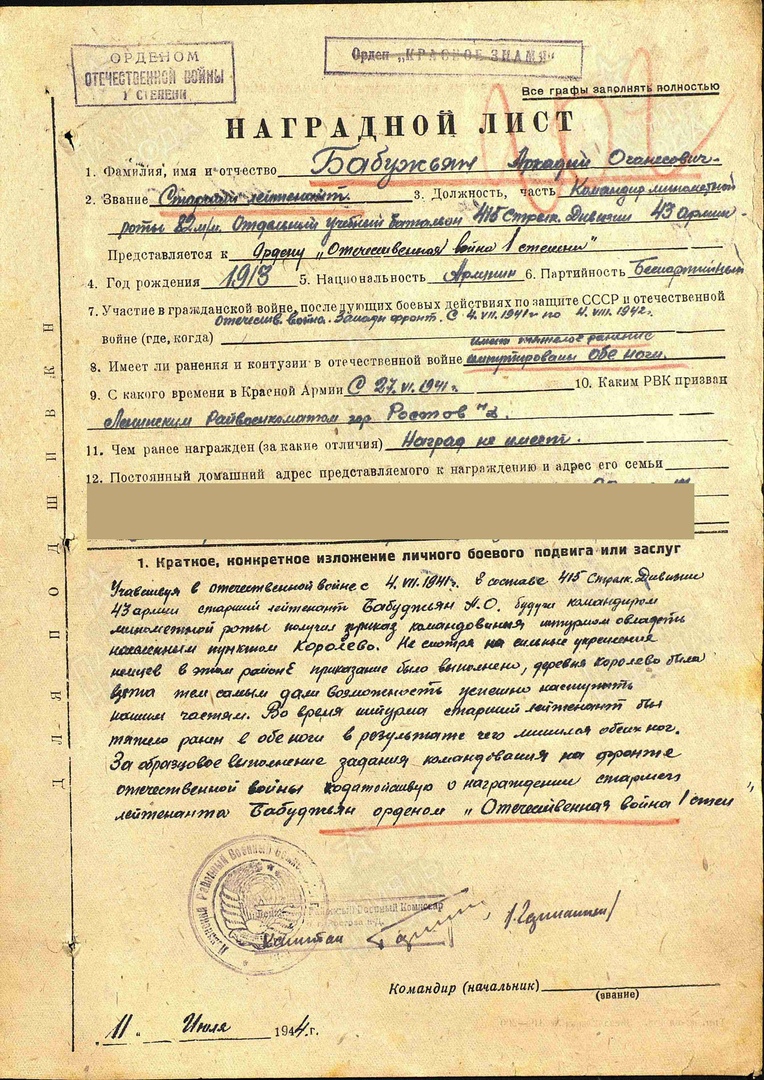 ОРДЕНОМ
ОТЕЧЕСТВЕННОЙ ВОЙНЫ
I СТЕПЕНИ
Орден „КРАСНОЕ ЗНАМЯ“
Все графы заполнять полностью
НАГРАДНОЙ ЛИСТ
1. Фамилия, имя и отчество Бабужьян Аркадий Оганесович
2. Звание Старший лейтенант. 3. Должность, часть Командир минометной
роты 82м/м. Отдельный учебный батальон 415 Стрелк. Дивизии 43 армии
Представляется к Ордену „Отечественная война 1 степени“
4. Год рождения 1913 5. Национальность Армянин 6. Партийность Беспартийный
7. Участие в гражданской войне, последующих боевых действиях по защите СССР и отечественной
Отечествен. война. Западн фронт. С 4.VII.1941г по 4.VIII.1942г.
войне (где, когда)
имеет тяжелое ранение
8. Имеет ли ранения и контузии в отечественной войне ампутированы обе ноги.
9. С какого времени в Красной Армии С 27.VI.1941г. 10. Каким РВК призван
Ленинским Райвоенкоматом гор Ростов н/д.
11. Чем ранее награжден (за какие отличия) Наград не имеет.
12. Постоянный домашний адрес представляемого к награждению и адрес его семьи
1. Краткое, конкретное изложение личного боевого подвига или заслуг
Учавствуя в отечественной войне с 4.VII.1941г. в составе 415 Стрелк. Дивизии
43 армии старший лейтенант Бабуджьян А.О. будучи командиром
минометной роты получил приказ командования штурмом овладеть
населенным пунктом Королёво. Не смотря на сильные укрепления
немцев в этом районе приказание было выполнено, деревня Королево была
взята тем самым дали возможность успешно наступать
нашим частям. Во время штурма старший лейтенант был
тяжело ранен в обе ноги в результате чего лишился обеих ног.
За образцовое выполнение задания командования на фронте
отечественной войны ходатайствую о награждении старшего
лейтенанта Бабуджьян орденом „Отечественная война 1 степ“
Районный Военный Комиссар
Капитан
Командир (начальник)
(звание)
„11“ Июля 1944 г.
ДЛЯ ПОДШИВКИ